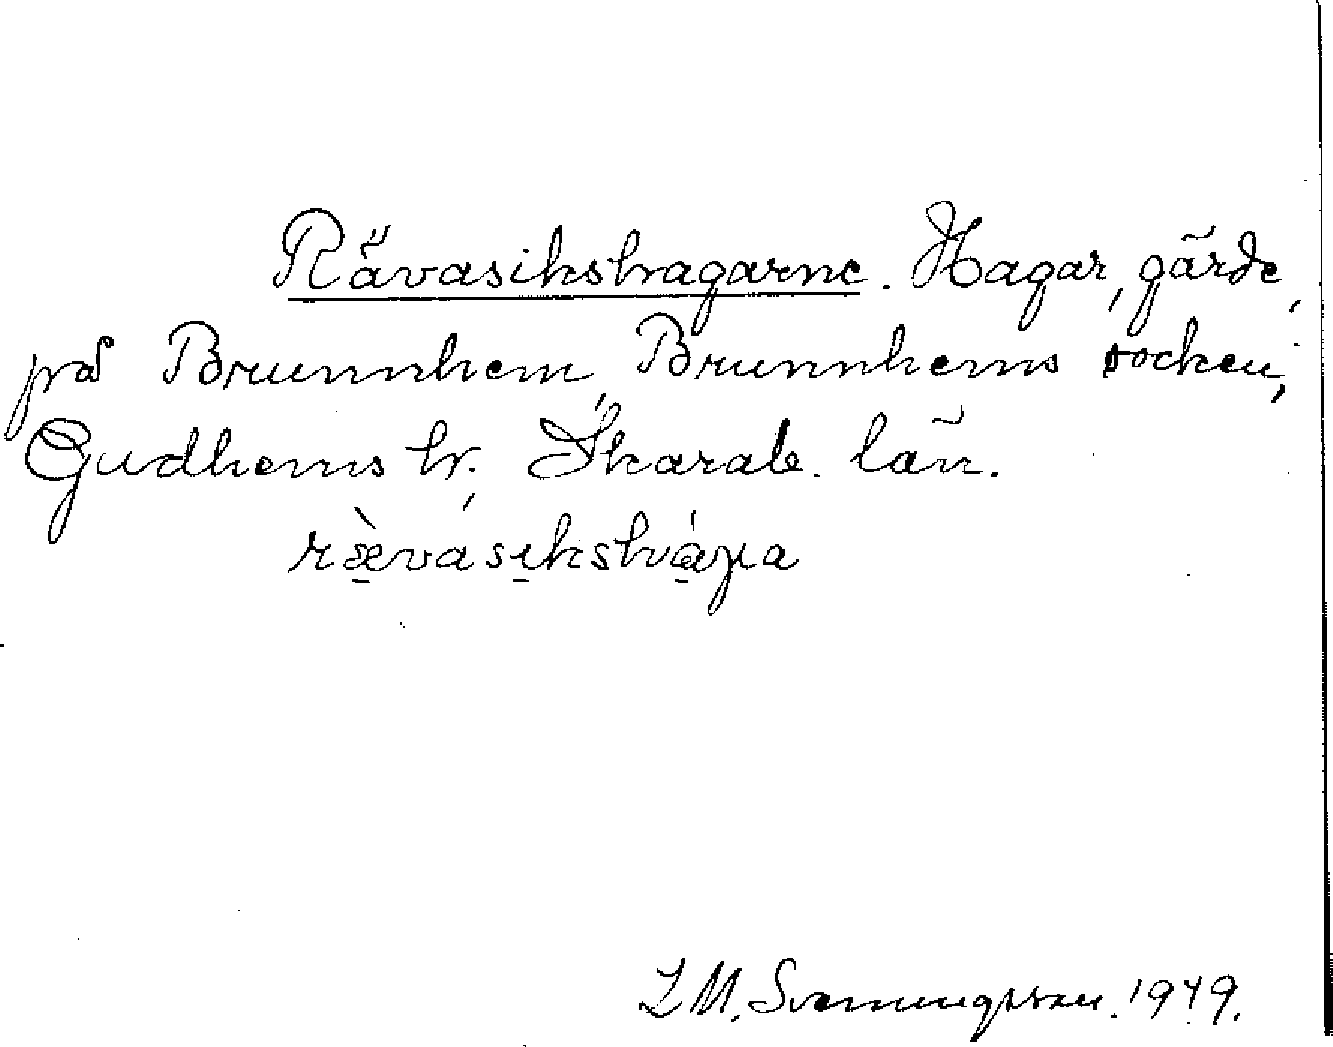 Rävasikshagarne. Hagar, gärde,
på Brunnhem, Brunnhems socken,
Gudhems hr. Skarab. län.
ræ̀vásikshága
I. M. Svenningsson. 1949.